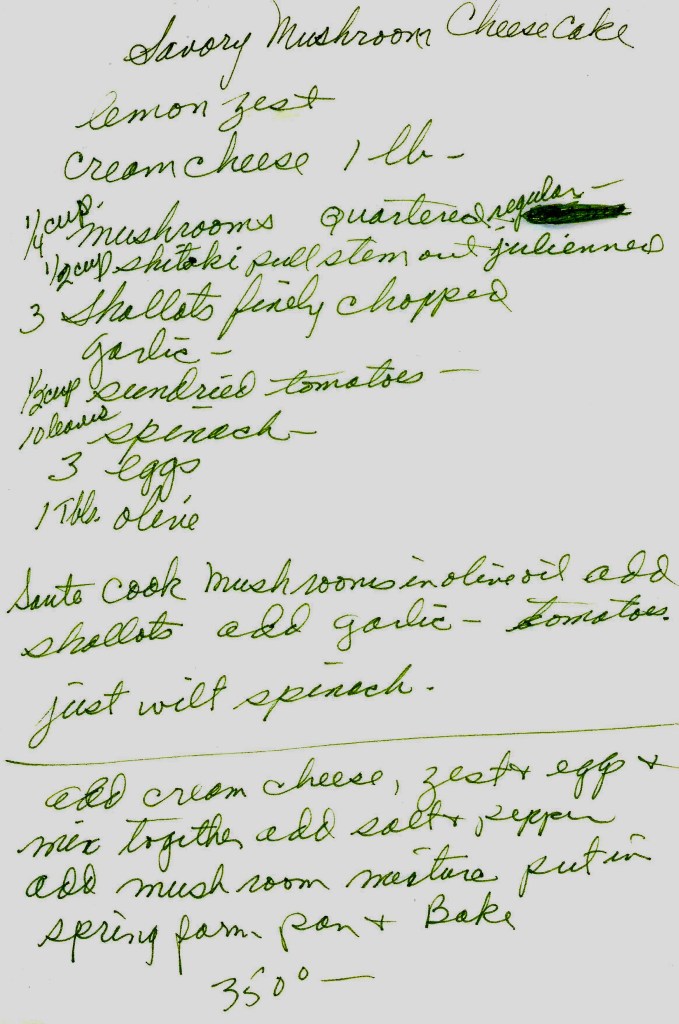 Savory Mushroom Cheesecake
lemon zest
cream cheese 1 lb -
1/4 cup. mushrooms quartered regular -
1/2 cup shitaki pull stem out julienned
3 Shallots finely chopped
garlic -
1/2 cup sundried tomatoes -
10 leaves spinach -
3 eggs
1 Tbls. olive
Saute cook mushrooms in olive oil add
shallots add garlic - tomatoes.
just wilt spinach.
add cream cheese, zest + eggs +
mix together add salt + pepper
add mushroom mixture put in
spring form pan + Bake
350° -